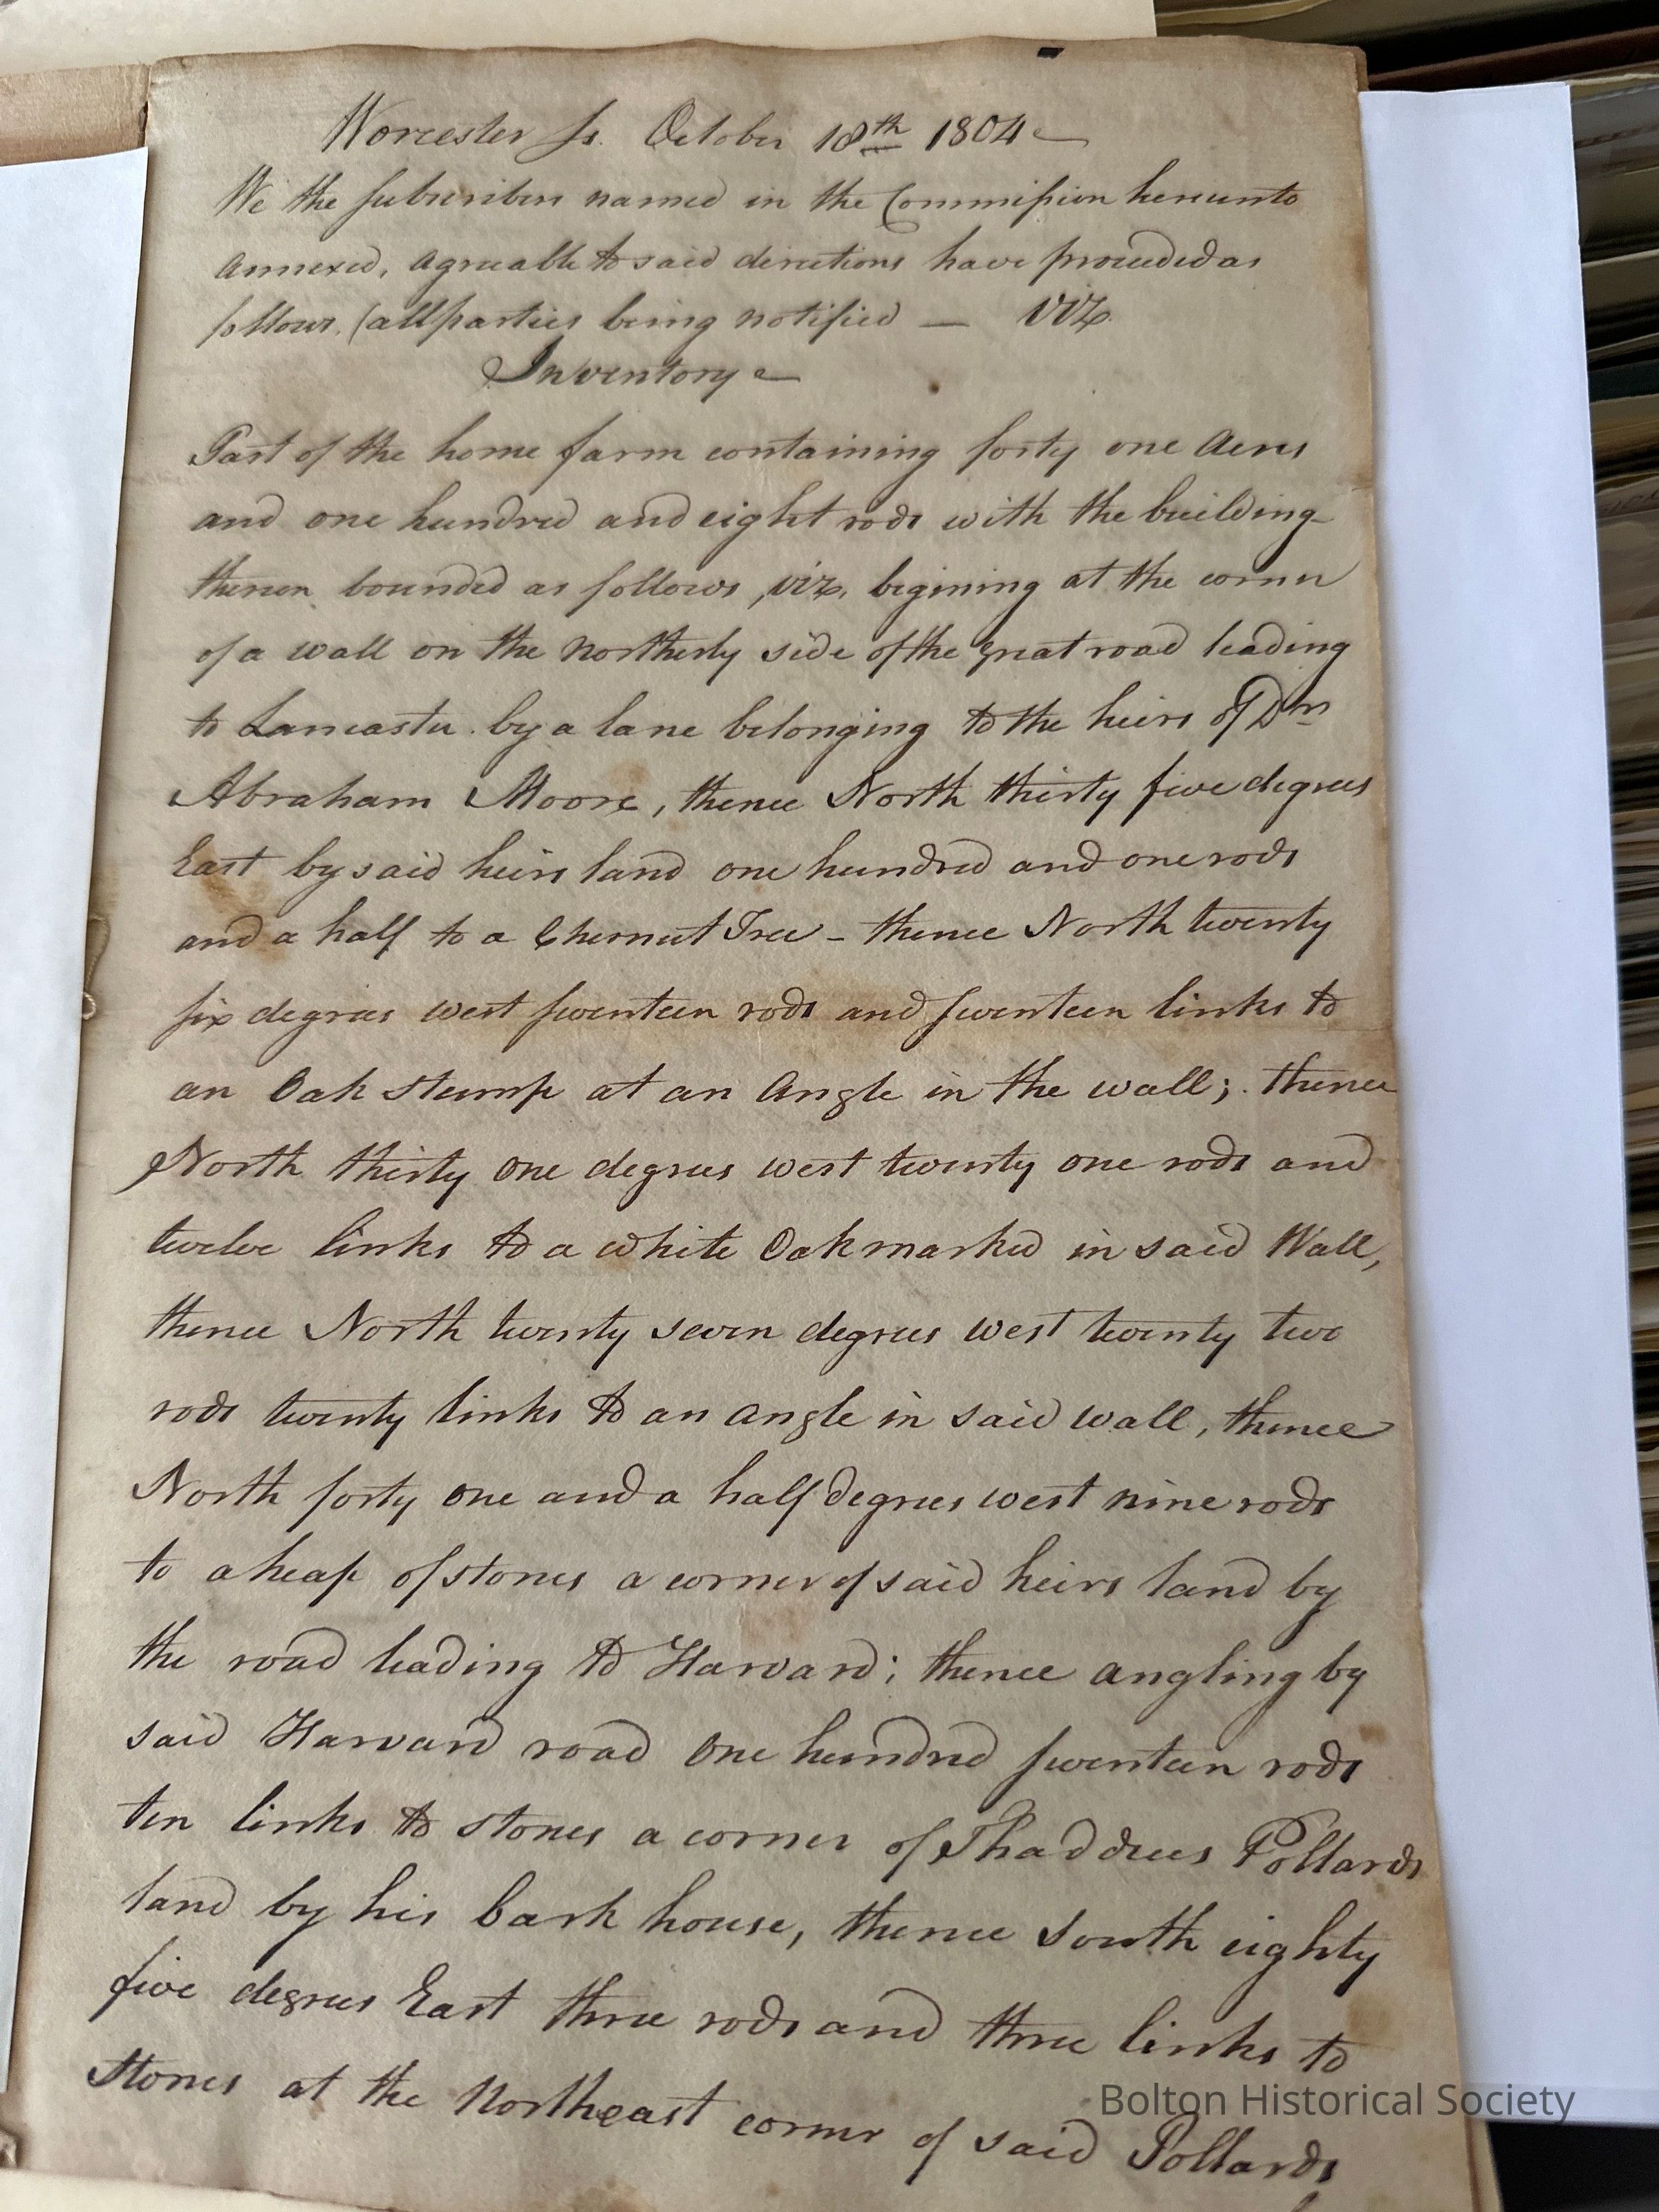 Worcester Ss. October 18th 1804
We the subscribers named in the Commission hereunto
annexed, agreeable to said directions have proceeded as
follows, (all parties being notified — viz.
Inventory
Part of the home farm containing forty one Acres
and one hundred and eight rods with the building
thereon bounded as follows, viz, begining at the corner
of a wall on the northerly side of the great road leading
to Lancaster by a lane belonging to the heirs of Dn
Abraham Moore, thence North thirty five degrees
East by said heirs land one hundred and one rods
and a half to a Chesnut Tree - thence North twenty
six degrees west seventeen rods and seventeen links to
an Oak stump at an Angle in the wall; thence
North thirty one degrees west twenty one rods and
twelve links to a white Oak marked in said Wall,
thence North twenty seven degrees west twenty two
rods twenty links to an angle in said wall, thence
North forty one and a half degrees west nine rods
to a heap of stones a corner of said heirs land by
the road leading to Harvard; thence angling by
said Harvard road One hundred seventeen rods
ten links to stones a corner of Thaddeus Pollards
land by his bark house, thence south eighty
five degrees East three rods and three links to
stones at the Northeast corner of said Pollards
Bolton Historical Society